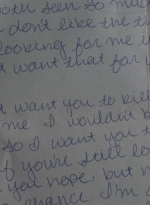 both seen so much
don't like the th
looking for me w
want that for y
want you to kill
me I wouldn't b
So I want you t
if you're still lo
you nope, but n
chance. I'm a